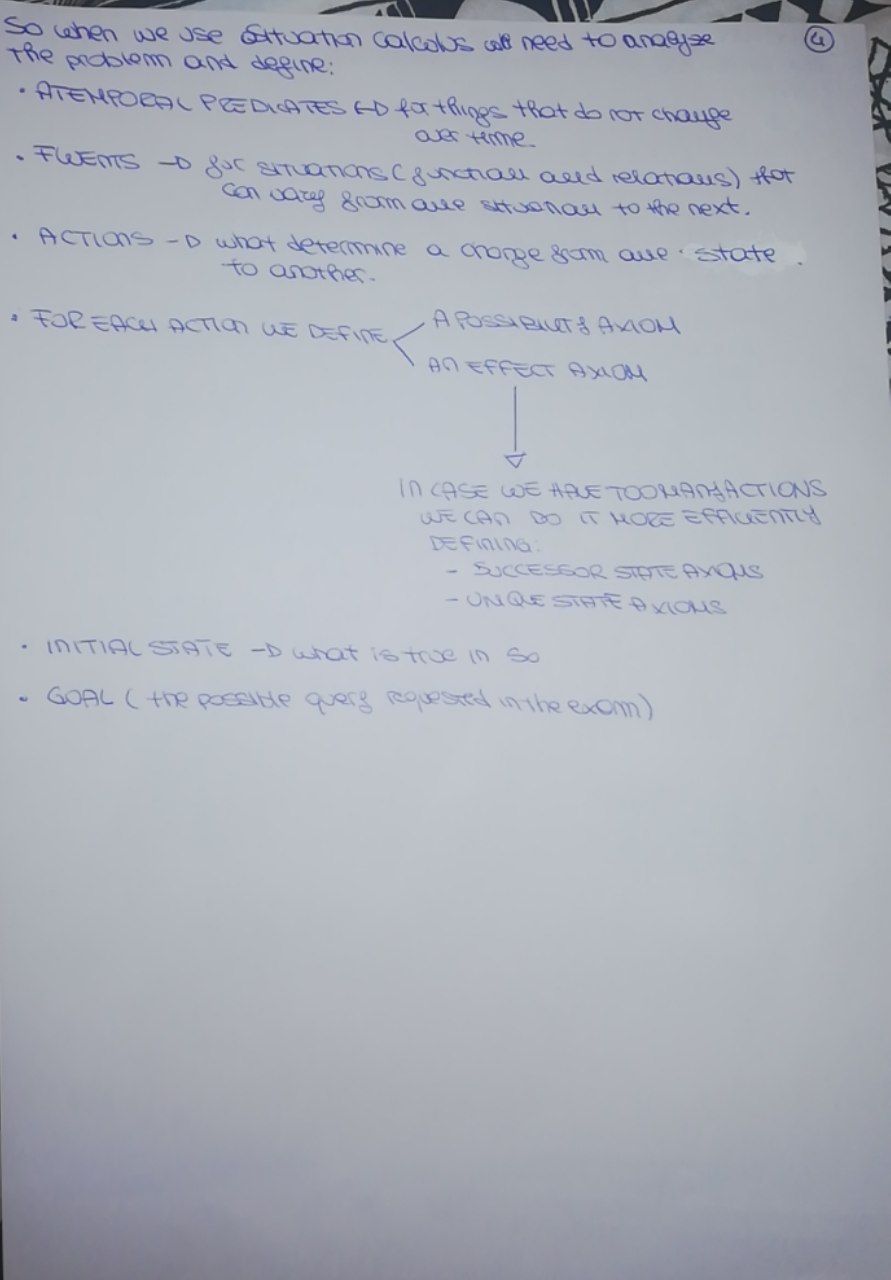 So when we use situation calculus we need to analyze
④
the problem and define:
• ATEMPORAL PREDICATES -D for things that do not change
over time.
• FLUENTS -D for situations (functions and relations) that
can vary from one situation to the next.
• ACTIONS -D what determine a change from one state.
to another.
• FOR EACH ACTION WE DEFINE
A POSSIBILITY AXIOM
AN EFFECT AXIOM
IN CASE WE HAVE TOO MANY ACTIONS
WE CAN DO IT MORE EFFICIENTLY
DEFINING:
- SUCCESSOR STATE AXIOMS
- UNIQUE STATE AXIOMS
• INITIAL STATE -D what is true in So
• GOAL (the possible query requested in the exam)